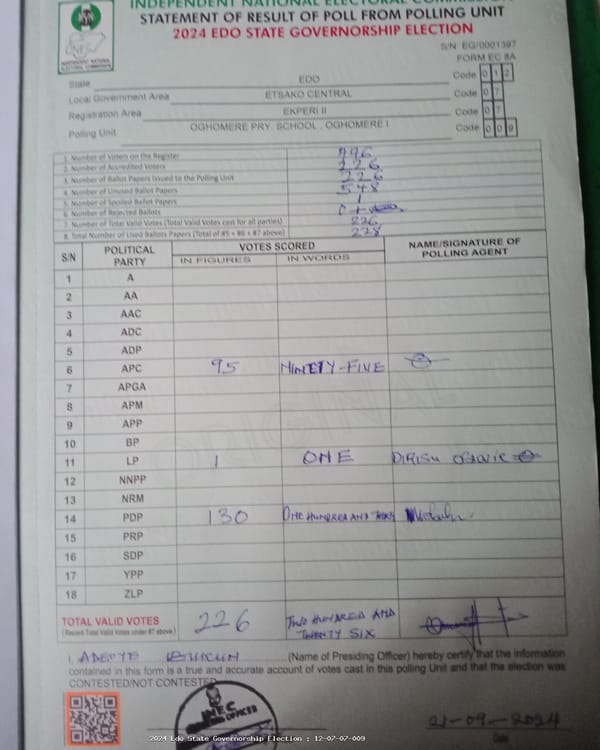 INDEPENDENT NATIONAL ELECTORAL COMMISSION
STATEMENT OF RESULT OF POLL FROM POLLING UNIT
2024 EDO STATE GOVERNORSHIP ELECTION
S/N: EG/0001397
FORM EC 8A
State EDO Code 0 1 2
Local Government Area ETSAKO CENTRAL Code 0 7
Registration Area EKPERI II Code 0 7
Polling Unit OGHOMERE PRY. SCHOOL, OGHOMERE I Code 0 0 9
1. Number of Voters on the Register 796
2. Number of Accredited Voters 226
3. Number of Ballot Papers Issued to the Polling Unit
4. Number of Unused Ballot Papers 548
5. Number of Spoiled Ballot Papers 1
6. Number of Rejected Ballots
7. Number of Total Valid Votes (Total Valid Votes cast for all parties) 226
8. Total Number of Used Ballots Papers (Total of #5 + #6 + #7 above) 228
S/N POLITICAL PARTY VOTES SCORED NAME/SIGNATURE OF POLLING AGENT
IN FIGURES IN WORDS
1 A
2 AA
3 AAC
4 ADC
5 ADP
6 APC 95 NINETY-FIVE
7 APGA
8 APM
9 APP
10 BP
11 LP 1 ONE
12 NNPP
13 NRM
14 PDP 130 ONE HUNDRED AND
15 PRP
16 SDP
17 YPP
18 ZLP
TOTAL VALID VOTES 226 TWO HUNDRED AND
(Record Total Valid Votes under #7 above) TWENTY SIX
I, (Name of Presiding Officer) hereby certify that the information
contained in this form is a true and accurate account of votes cast in this polling Unit and that the election was
CONTESTED/NOT CONTESTED
INEC
PRESIDING OFFICER
21-09-2024
Date
2024 Edo State Governorship Election : 12-07-07-009